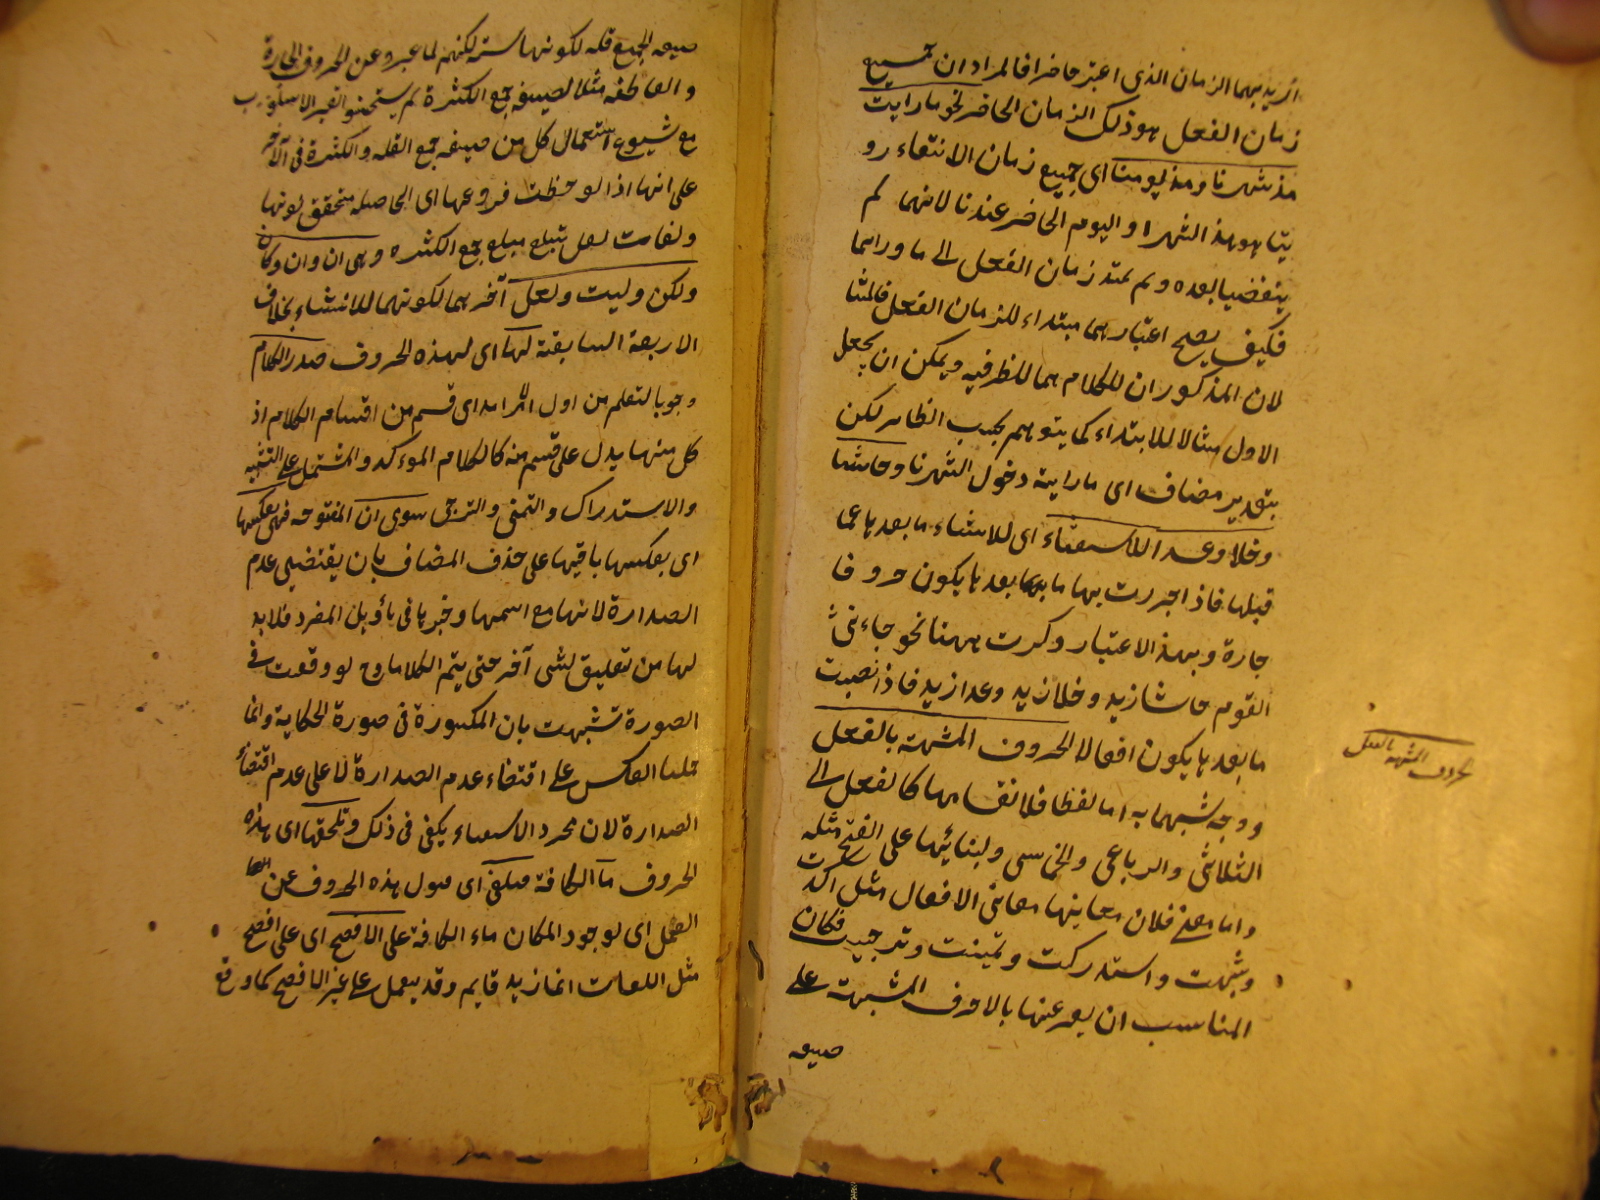 اريد بهما الزمان الذى اعتبر حاضرا فالمراد ان جميع
زمان الفعل هو ذلك الزمان الحاضر نحو ما رايت
مذ شهرنا ومذ يومنا اى جميع زمان الانتفاء رو
يتنا هو هذا الشهر او اليوم الحاضر عندنا لانهما لم
ينقضيا بعده ولم يمتد زمان الفعل الى ما ورائهما
فكيف يصح اعتبارهما مبتداء للزمان الفعل فالمثا
لان المذكوران للكلام هما للظرفيه ويمكن ان يجعل
الاول مثالا للابتداء كما يتوهم بحسب الظاهر لكن
بتقدير مضاف اى ما رايته دخول الشهرنا وحاشا
وخلا وعدا للاستثناء اى للاستثناء ما بعدها عما
قبلها فاذا جررت بها ما بعدها يكون حروفا
جارة وبهذا الاعتبار ذكرت ههنا نحو جاءنى
القوم حاشا زيد وخلا زيد وعدا زيد فاذا نصبت
ما بعدها يكون افعالا الحروف المشبهة بالفعل
ووجه شبهها به اما لفظا فلانقسامها كالفعل الى
الثلاثى والرباعى والخماسى ولبنائها على الفتح مثله
واما معنى فلان معانيها معانى الافعال مثل اكدت
وشبهت واستدركت وتمنيت وترجيت فكان
المناسب ان يعبر عنها بالاحرف المشبهة على
صيغه
الحروف المشبهة بالفعل
صيغه الجمع قله لكونها سته لكنهم لما عبروا عن الحروف الجارة
والعاطفه مثلا لصيغه جمع الكثرة لم يستحسنوا تغير الاسلوب
مع شيوع استعمال كل من صيغه جمع القله والكثرة فى الآخر
على انها اذا لوحظت فروعها اى الحاصله بتخفيف نونها
ولغات لعل تبلغ مبلغ جمع الكثره وهى ان وان وكان
ولكن وليت ولعل آخرهما لكونهما للانشاء بخلاف
الاربعة السابقة لها اى لهذه الحروف صدر الكلام
وجوبا لتعلم من اول الامر اى قسم من اقسام الكلام اذ
كل منها يدل على قسم منه كالكلام الموءكد والمشتمل على التشبيه
والاستدراك والتمنى والترجى سوى ان المفتوحه فهى بعكسها
اى بعكسها باقيها على حذف المضاف بان يقتضى عدم
الصدارة لانها مع اسمها وخبرها فى تأويل المفرد فلا بد
لها من تعليق لشى آخر حتى يتم الكلاما وح لو وقعت فى
الصورة تشبهت بان المكسورة فى صورة الحكاية وانما
حملنا العكس على اقتضاء عدم الصدارة لا على عدم اقتضاء
الصدارة لان مجرد الاستثناء يكفى فى ذلك وتلحقها اى هذه
الحروف ما الكافة فتلغى اى هذه الحروف عن
العمل اى لوجود المكان ماء الكافة على الافصح اى على افصح
مثل اللغات انما زيد قايم وقد يعمل على غير الافصح كما وقع